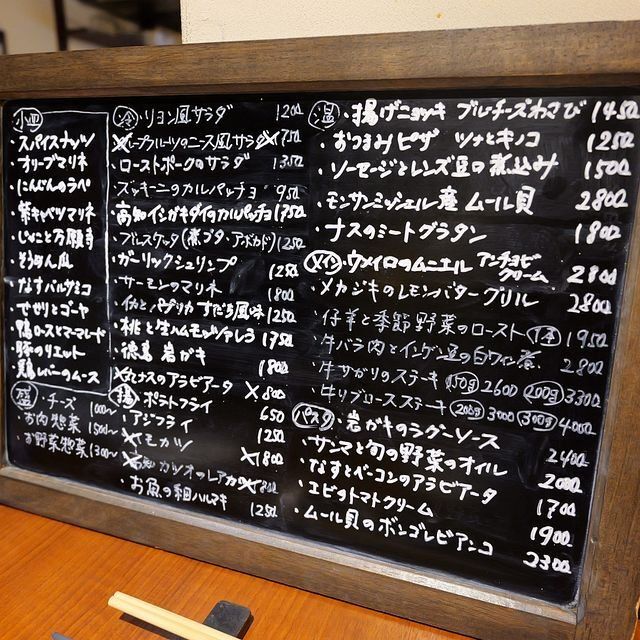 小皿
・スパイスナッツ
・オリーブマリネ
・にんじんのラペ
・紫キャベツマリネ
・じゃこと万願寺
・そうめん瓜
・なすバルサミコ
・でせりとゴーヤ
・鴨ロースとマーマレード
・豚のリエット
・鶏レバーのムース
盛・チーズ 1000〜
・お肉惣菜 1500〜
・お野菜惣菜 1300〜
冷・リヨン風サラダ 1200
グレープフルーツのニース風サラダ 1750
・ローストポークのサラダ 1350
・ズッキーニのカルパッチョ 950
・高知イシガキダイのカルパッチョ 1750
・ブルスケッタ(煮ブタ・アボカド) 1250
・ガーリックシュリンプ 1250
・サーモンのマリネ 1800
・イカとパプリカ すだち風味 1250
・桃と生ハムモッツァレラ 1750
・徳島 岩がき 1800
ナスのアラビアータ 800
揚・ポテトフライ 650
・アジフライ 1250
モカツ 1800
高知カツオのレアカツ 1800
・お魚の和ハルマキ 1250
温・揚げニョッキ ブルーチーズわさび 1450
・おつまみピザ ツナとキノコ 1250
・ソーセージとレンズ豆の煮込み 1500
・モンサンミッシェル産 ムール貝 2800
・ナスのミートグラタン 1800
メイン・ウメイロのムニエル アンチョビクリーム 2800
・メカジキのレモンバターグリル 2800
・仔羊と季節野菜のロースト 1本 1950
・牛バラ肉とインゲン豆の白ワイン煮 2800
・牛サガリのステーキ 150g 2600 200g 3300
・牛リブロースステーキ 200g 3000 300g 4000
パスタ・岩がきのラグーソース 2400
・サンマと旬の野菜のオイル 2000
・なすとベーコンのアラビアータ 1700
・エビのトマトクリーム 1900
・ムール貝のボンゴレビアンコ 2300